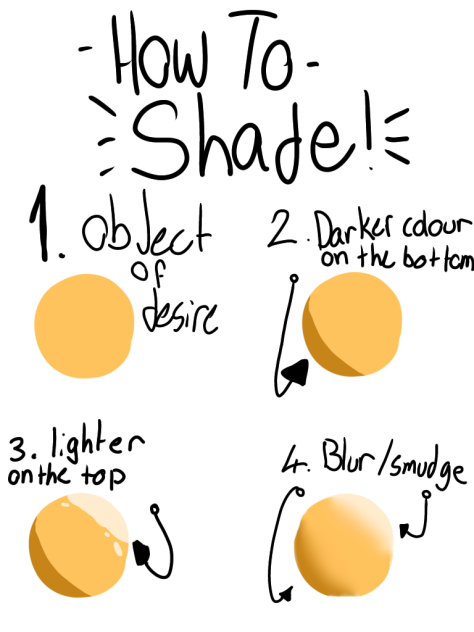 - How To -
Shade!
1. object
of
desire
2. Darker colour
on the bottom
3. lighter
on the top
4. Blur/smudge